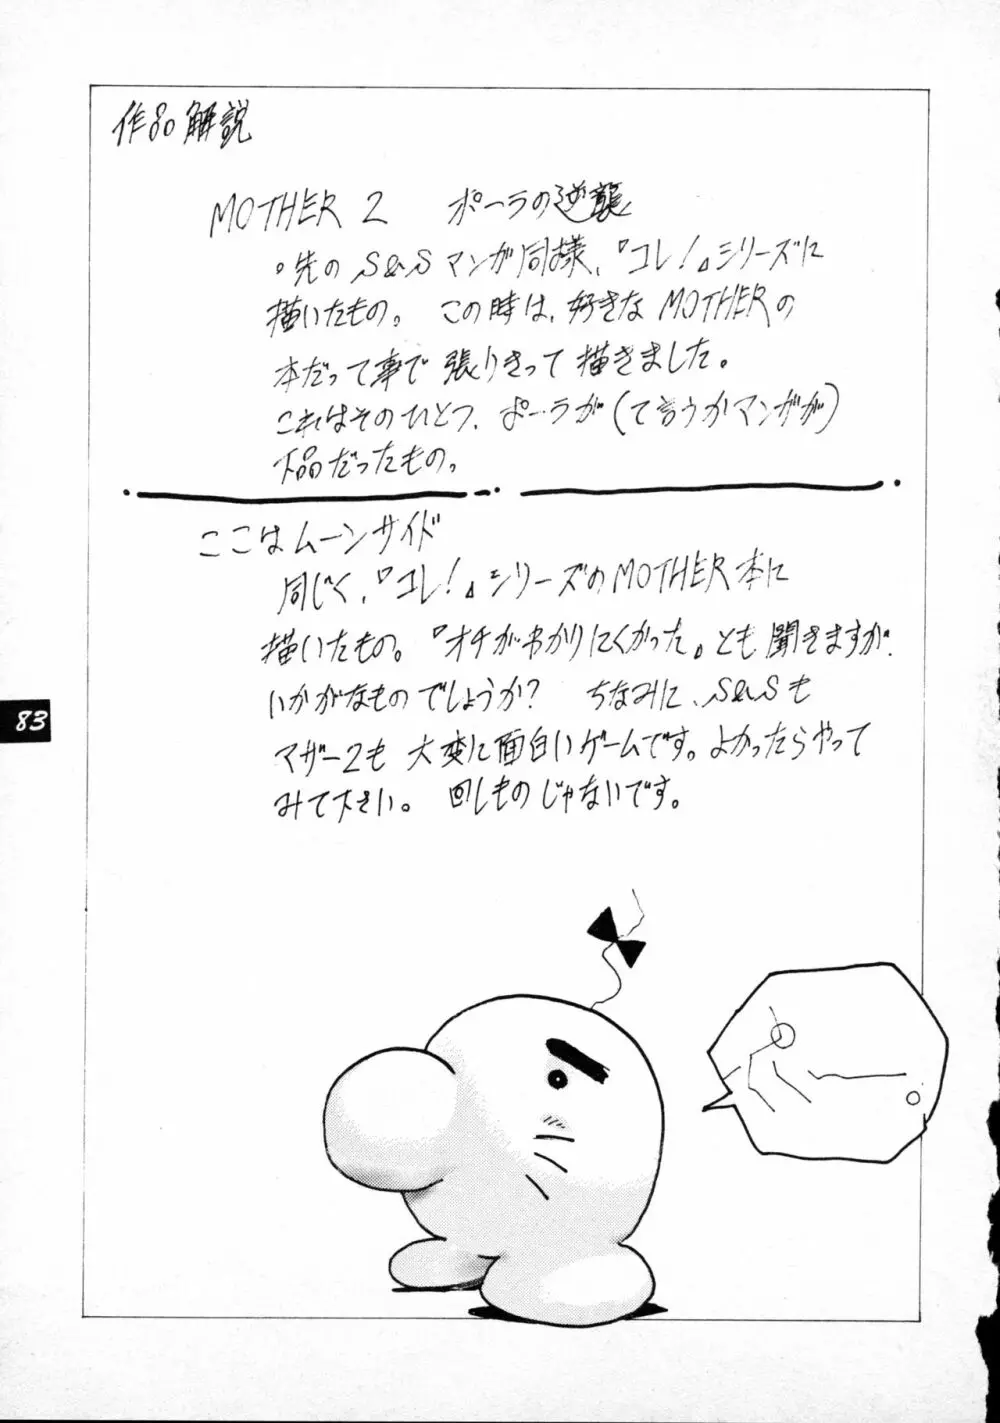 作品解説
MOTHER 2　ポーラの逆襲
。先の S&S マンガ同様、『コレ!』シリーズに
描いたもの。この時は、好きな MOTHERの
本だって事で張りきって描きました。
これはそのひとつ、ポーラが(て言うかマンガが)
下品だったもの。
ここはムーンサイド
同じく、『コレ!』シリーズのMOTHER本に
描いたもの。『オチがわかりにくかった』とも聞きますが、
いかがなものでしょうか?　ちなみに、S&Sも
マザー2も 大変に面白いゲームです。よかったらやって
みて下さい。回しものじゃないです。
83